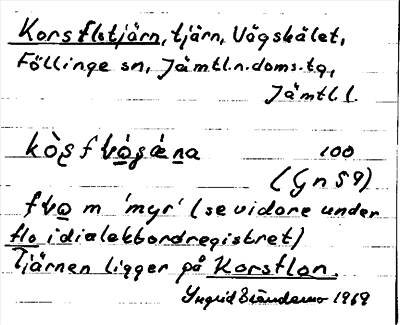 Korsflotjärn, tjärn, Vågskälet,
Föllinge sn, Jämtl.n.doms.tg,
Jämtl.l.
100
(Gn 59)
m 'myr' (se vidare under
flo i dialektordregistret)
Tjärnen ligger på Korsflon.
Ingrid 1969